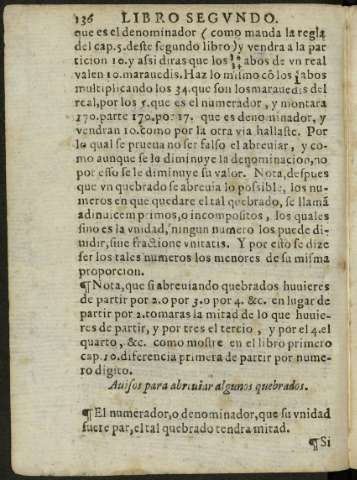 136 LIBRO SEGVNDO.
que es el denominador (como manda la regla
del cap.5.deste segundo libro) y vendra a la par
ticion 10.y assi diras que los abos de vn real
valen 10.marauedis. Haz lo mismo cõ los abos
multiplicando los 34.que son los marauedis del
real, por los 5.que es el numerador, y montara
170.parte 170.por 17. que es denominador, y
vendran 10.como por la otra via hallaste. Por
lo qual se prueua no ser falso el abreuiar, y co-
mo aunque se le diminuye la denominacion,no
por esso se le diminuye su valor. Nota, despues
que vn quebrado se abreuia lo possible, los nu-
meros en que quedare el tal quebrado, se llamã
adinuicem primos, o incompositos, los quales
sino es la vnidad, ningun numero los puede di-
uidir, sine fractione vnitatis. Y por esto se dize
ser los tales numeros los menores de su misma
proporcion.
¶Nota, que si abreuiando quebrados huuieres
de partir por 2.o por 3.o por 4. &c. en lugar de
partir por 2.tomaras la mitad de lo que huuie-
res de partir, y por tres el tercio , y por el 4.el
quarto, &c. como mostre en el libro primero
cap.10.diferencia primera de partir por nume-
ro digito.
Auisos para abreuiar algunos quebrados.
¶El numerador, o denominador, que su vnidad
fuere par, el tal quebrado tendra mitad.
¶Si